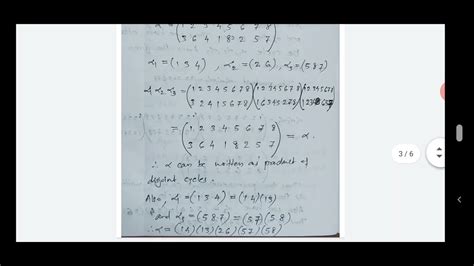 α = (1 2 3 4 5 6 7 8
3 6 4 1 8 2 5 7)
α₁ = (1 3 4) , α₂ = (2 6), α₃ = (5 8 7)
α₁ α₂ α₃ = (1 2 3 4 5 6 7 8) (1 2 3 4 5 6 7 8) (1 2 3 4 5 6 7 8)
(3 2 4 1 5 6 7 8) (1 6 3 4 5 2 7 8)
= (1 2 3 4 5 6 7 8
3 6 4 1 8 2 5 7) = α.
∴ α can be written as product of
disjoint cycles.
Also, α₁ = (1 3 4) = (1 4)(1 3)
and α₃ = (5 8 7) = (5 7)(5 8)
∴ α = (1 4)(1 3)(2 6)(5 7)(5 8)
3 / 6